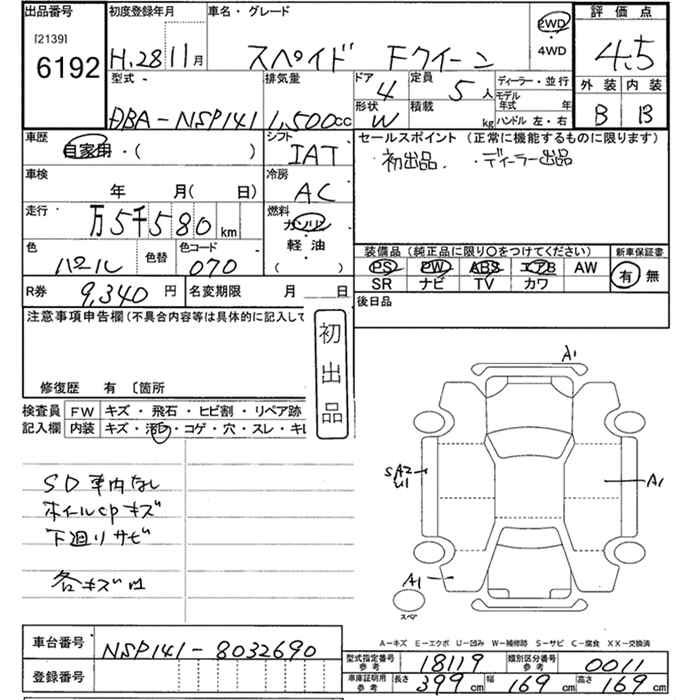 出品番号
[2139]
6192
初度登録年月
H.28 11月
車名・グレード
スペイド Fクイーン
2WD
・
4WD
評価点
4.5
外装 内装
B B
型式
DBA-NSP141
排気量
1,500cc
ドア
4
定員
5人
形状
W
積載
kg
ディーラー・並行
モデル年式 年
ハンドル 左・右
車歴
自家用・( )
シフト
IAT
車検
年 月( 日)
冷房
AC
走行
万5千580km
燃料
ガソリン
軽油
( )
色
パール
色替
色コード
070
R券
9,340円
名変期限 月 日
セールスポイント (正常に機能するものに限ります)
・初出品. ・ディーラー出品
装備品(純正品に限り○をつけてください)
PS PW ABS エアB AW
SR ナビ TV カワ
新車保証書
有 無
後日品
注意事項申告欄(不具合内容等は具体的に記入して
初出品
修復歴 有 〔箇所
検査員記入欄
FW キズ・飛石・ヒビ割・リペア跡
内装 キズ・汚れ・コゲ・穴・スレ・キレ
SD 車内なし
ホイールcpキズ
下廻りサビ
各キズU1
A1
SA2
U1
A1
A1
スペア
A-キズ E-エクボ U-凹み W-補修跡 S-サビ C-腐食 XX-交換済
車台番号
NSP141-8032690
登録番号
型式指定番号
参考
18119
類別区分番号
参考
0011
車庫証明用
参考
長さ 399cm 幅 169cm 高さ 169cm